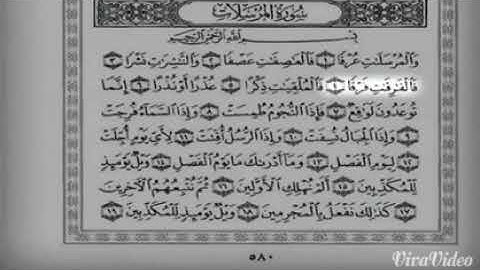 سُورَةُ المُرْسَلَاتِ
بِسْمِ اللَّهِ الرَّحْمَٰنِ الرَّحِيمِ
وَالْمُرْسَلَٰتِ عُرْفًا ١ فَالْعَٰصِفَٰتِ عَصْفًا ٢ وَالنَّٰشِرَٰتِ نَشْرًا ٣
فَالْفَٰرِقَٰتِ فَرْقًا ٤ فَالْمُلْقِيَٰتِ ذِكْرًا ٥ عُذْرًا أَوْ نُذْرًا ٦ إِنَّمَا
تُوعَدُونَ لَوَٰقِعٌ ٧ فَإِذَا النُّجُومُ طُمِسَتْ ٨ وَإِذَا السَّمَآءُ فُرِجَتْ
٩ وَإِذَا الْجِبَالُ نُسِفَتْ ١٠ وَإِذَا الرُّسُلُ أُقِّتَتْ ١١ لِأَيِّ يَوْمٍ أُجِّلَتْ
١٢ لِيَوْمِ الْفَصْلِ ١٣ وَمَآ أَدْرَىٰكَ مَا يَوْمُ الْفَصْلِ ١٤ وَيْلٌ يَوْمَئِذٍ
لِّلْمُكَذِّبِينَ ١٥ أَلَمْ نُهْلِكِ الْأَوَّلِينَ ١٦ ثُمَّ نُتْبِعُهُمُ الْءَاخِرِينَ
١٧ كَذَٰلِكَ نَفْعَلُ بِالْمُجْرِمِينَ ١٨ وَيْلٌ يَوْمَئِذٍ لِّلْمُكَذِّبِينَ ١٩
٥٨٠
VivaVideo